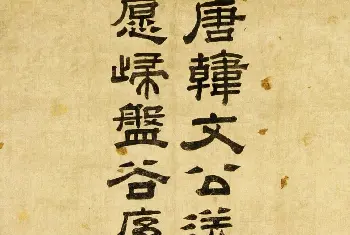 唐韓文公送
愿歸盤谷序